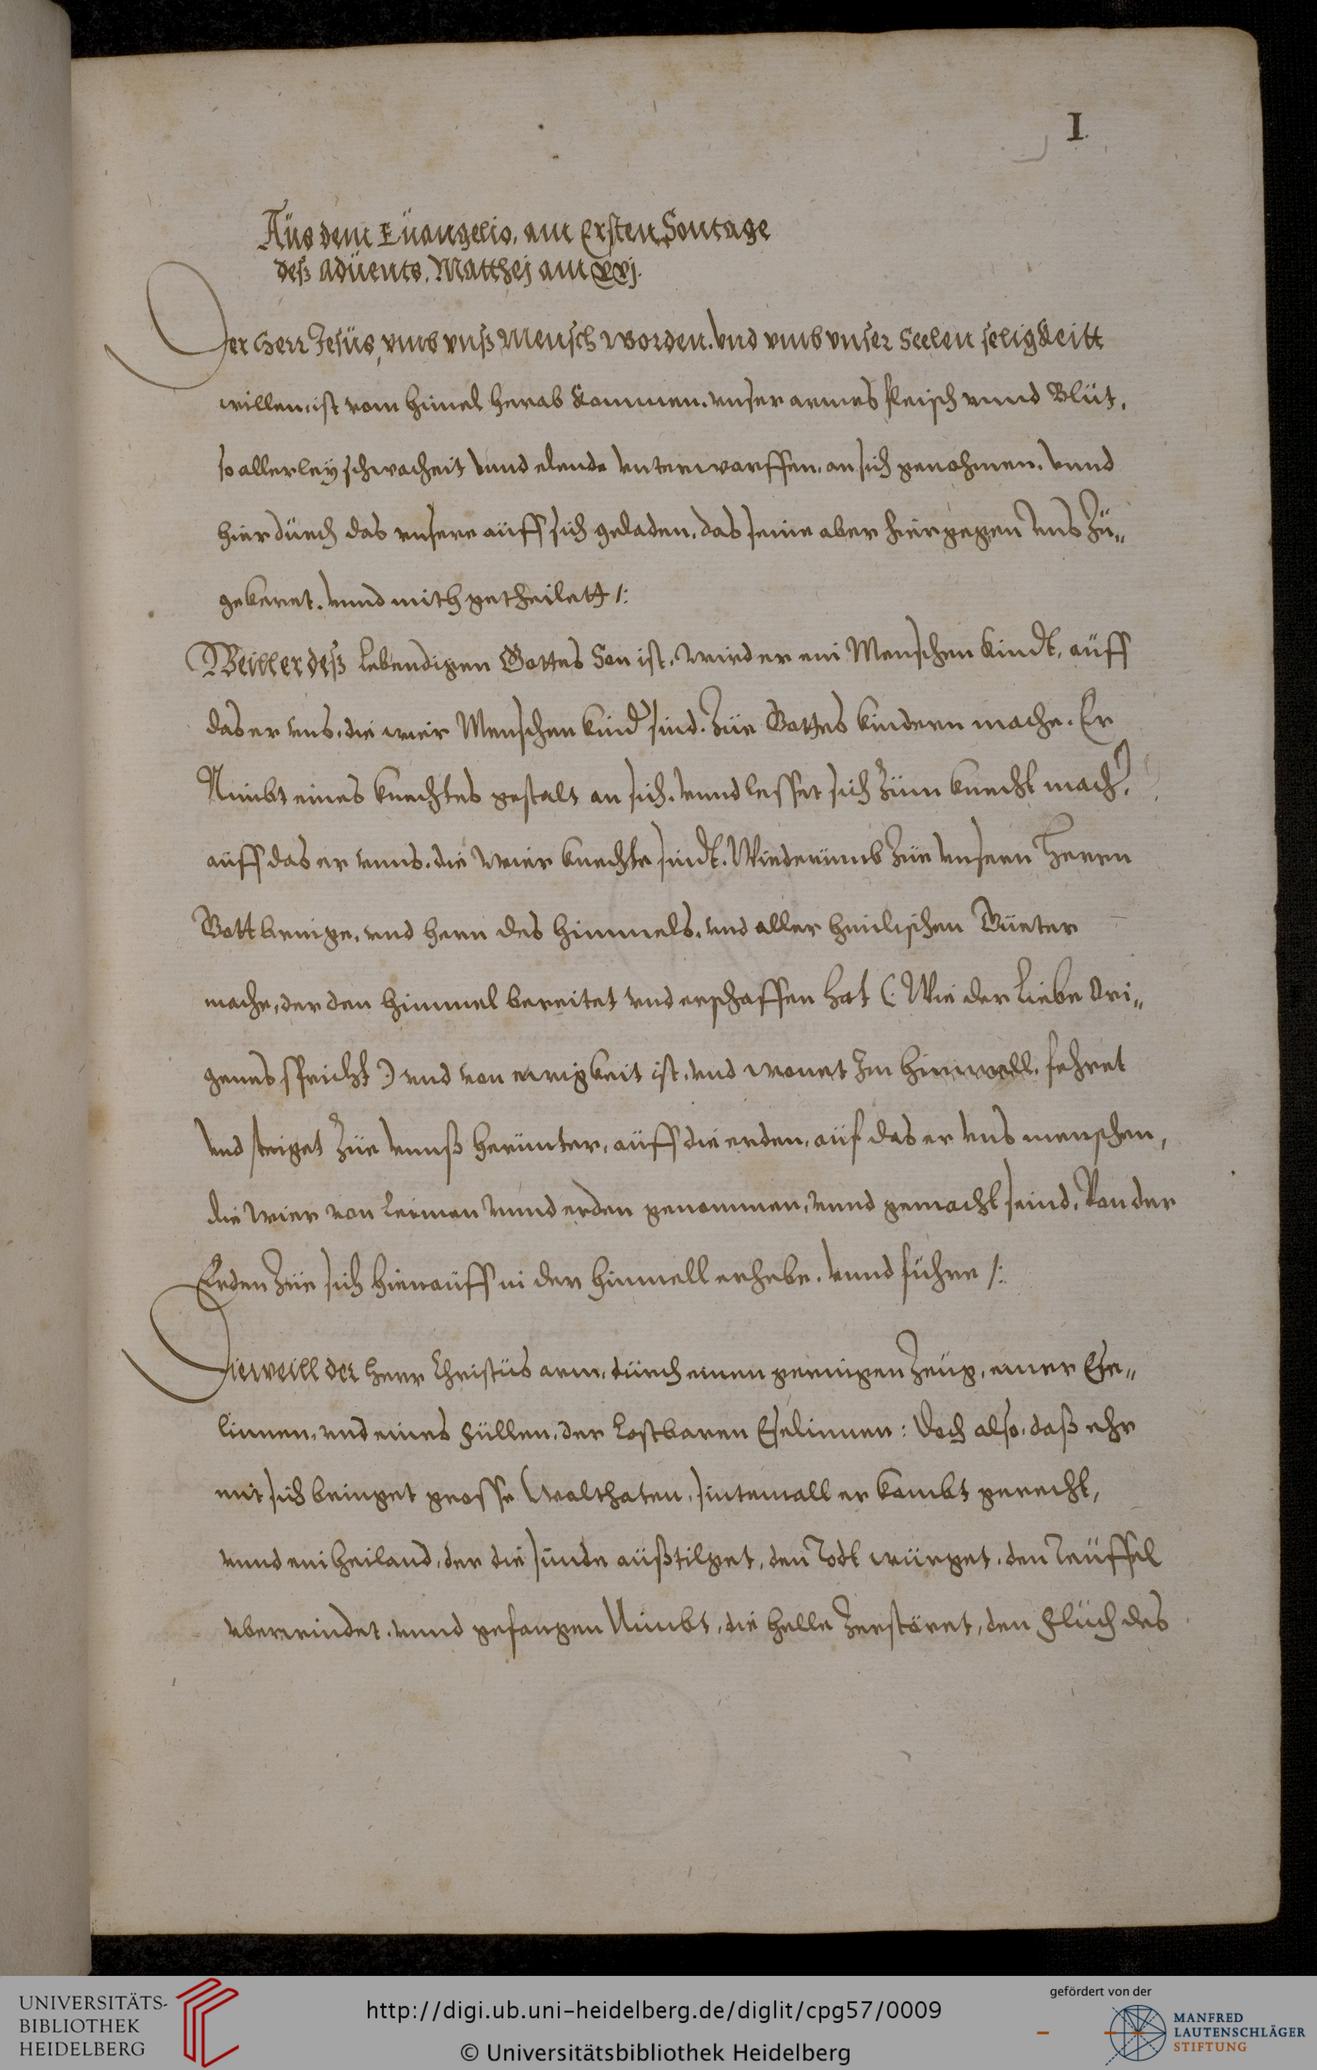 I.
Aüs dem Eüangelio, am Ersten Sontage
deß Adüents. Matthej am xxj.
Der Herr Jesüs vmb vnß Mensch worden. vnd vmb vnser Seelen seligkeitt
willen, ist vom himel herab kommen. vnser armes fleisch vnnd Blüt,
so allerley schwacheit vnnd elende vnterworffen, an sich genohmen. vnnd
hierdürch das vnsere aüff sich geladen, das seine aber hiergegen vns zü„
gekeret. vnnd mith getheilett /:
Weill er deß lebendigen Gottes Son ist, wird er ein Menschen kindt, aüff
das er vns, die wier Menschen kind sind, züe Gottes kindern mache. Er
Nimbt eines knechtes gestalt an sich, vnnd lesset sich züm knecht mach,
aüff das er vnns, die wier knechte sindt. Wiederümb züe vnsern Herrn
Gott bringe, vnd hern des himmels, vnd aller himlischen Güeter
mache, der den himmel bereitet vnd erschaffen hat (: Wie der liebe Ori„
genes spricht :) vnd von ewigkeit ist, vnd wonet Im himmell, fehret
vnd steiget züe vnnß herünter, aüff die erden, aüf das er vns menschen,
die wier von leimen vnnd erden genommen, vnnd gemacht seind, Von der
Erden züe sich hienaüff in den himmell erhebe. vnnd führe /:
Dieweill der herr Christüs arm, dürch einen geringen zeüg, einer Ese„
linnen, vnd eines Füllen, der lastbaren Eselinnen: Doch also, daß ehr
mit sich bringet grosse Wolthaten, sintemall er kombt gerecht,
vnnd ein heiland, der die sünde aüßtilget, den Todt würget, den Teüffel
vberwindet, vnnd gefangen Nimbt, die helle zerstöret, den Flüch des
UNIVERSITÄTS-
BIBLIOTHEK
HEIDELBERG
http://digi.ub.uni-heidelberg.de/diglit/cpg57/0009
© Universitätsbibliothek Heidelberg
gefördert von der
MANFRED
LAUTENSCHLÄGER
STIFTUNG